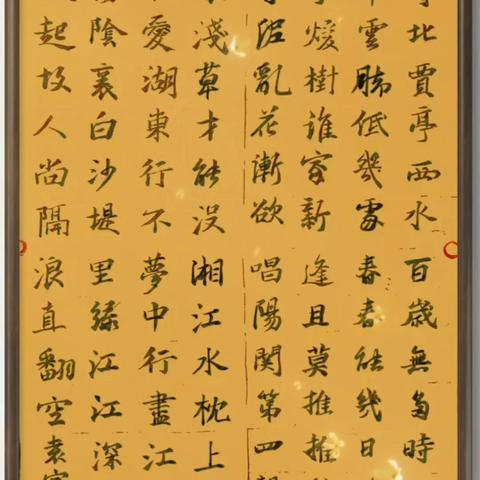 北賈亭西水百歲無多時
雲腳低幾處春春能幾日
煖樹誰家新逢且莫推推
泥亂花漸欲唱陽關第四
淺草才能沒湘江水枕上
愛湖東行不夢中行盡江
陰裏白沙堤里綠江江深
起故人尚隔浪直翻空袁